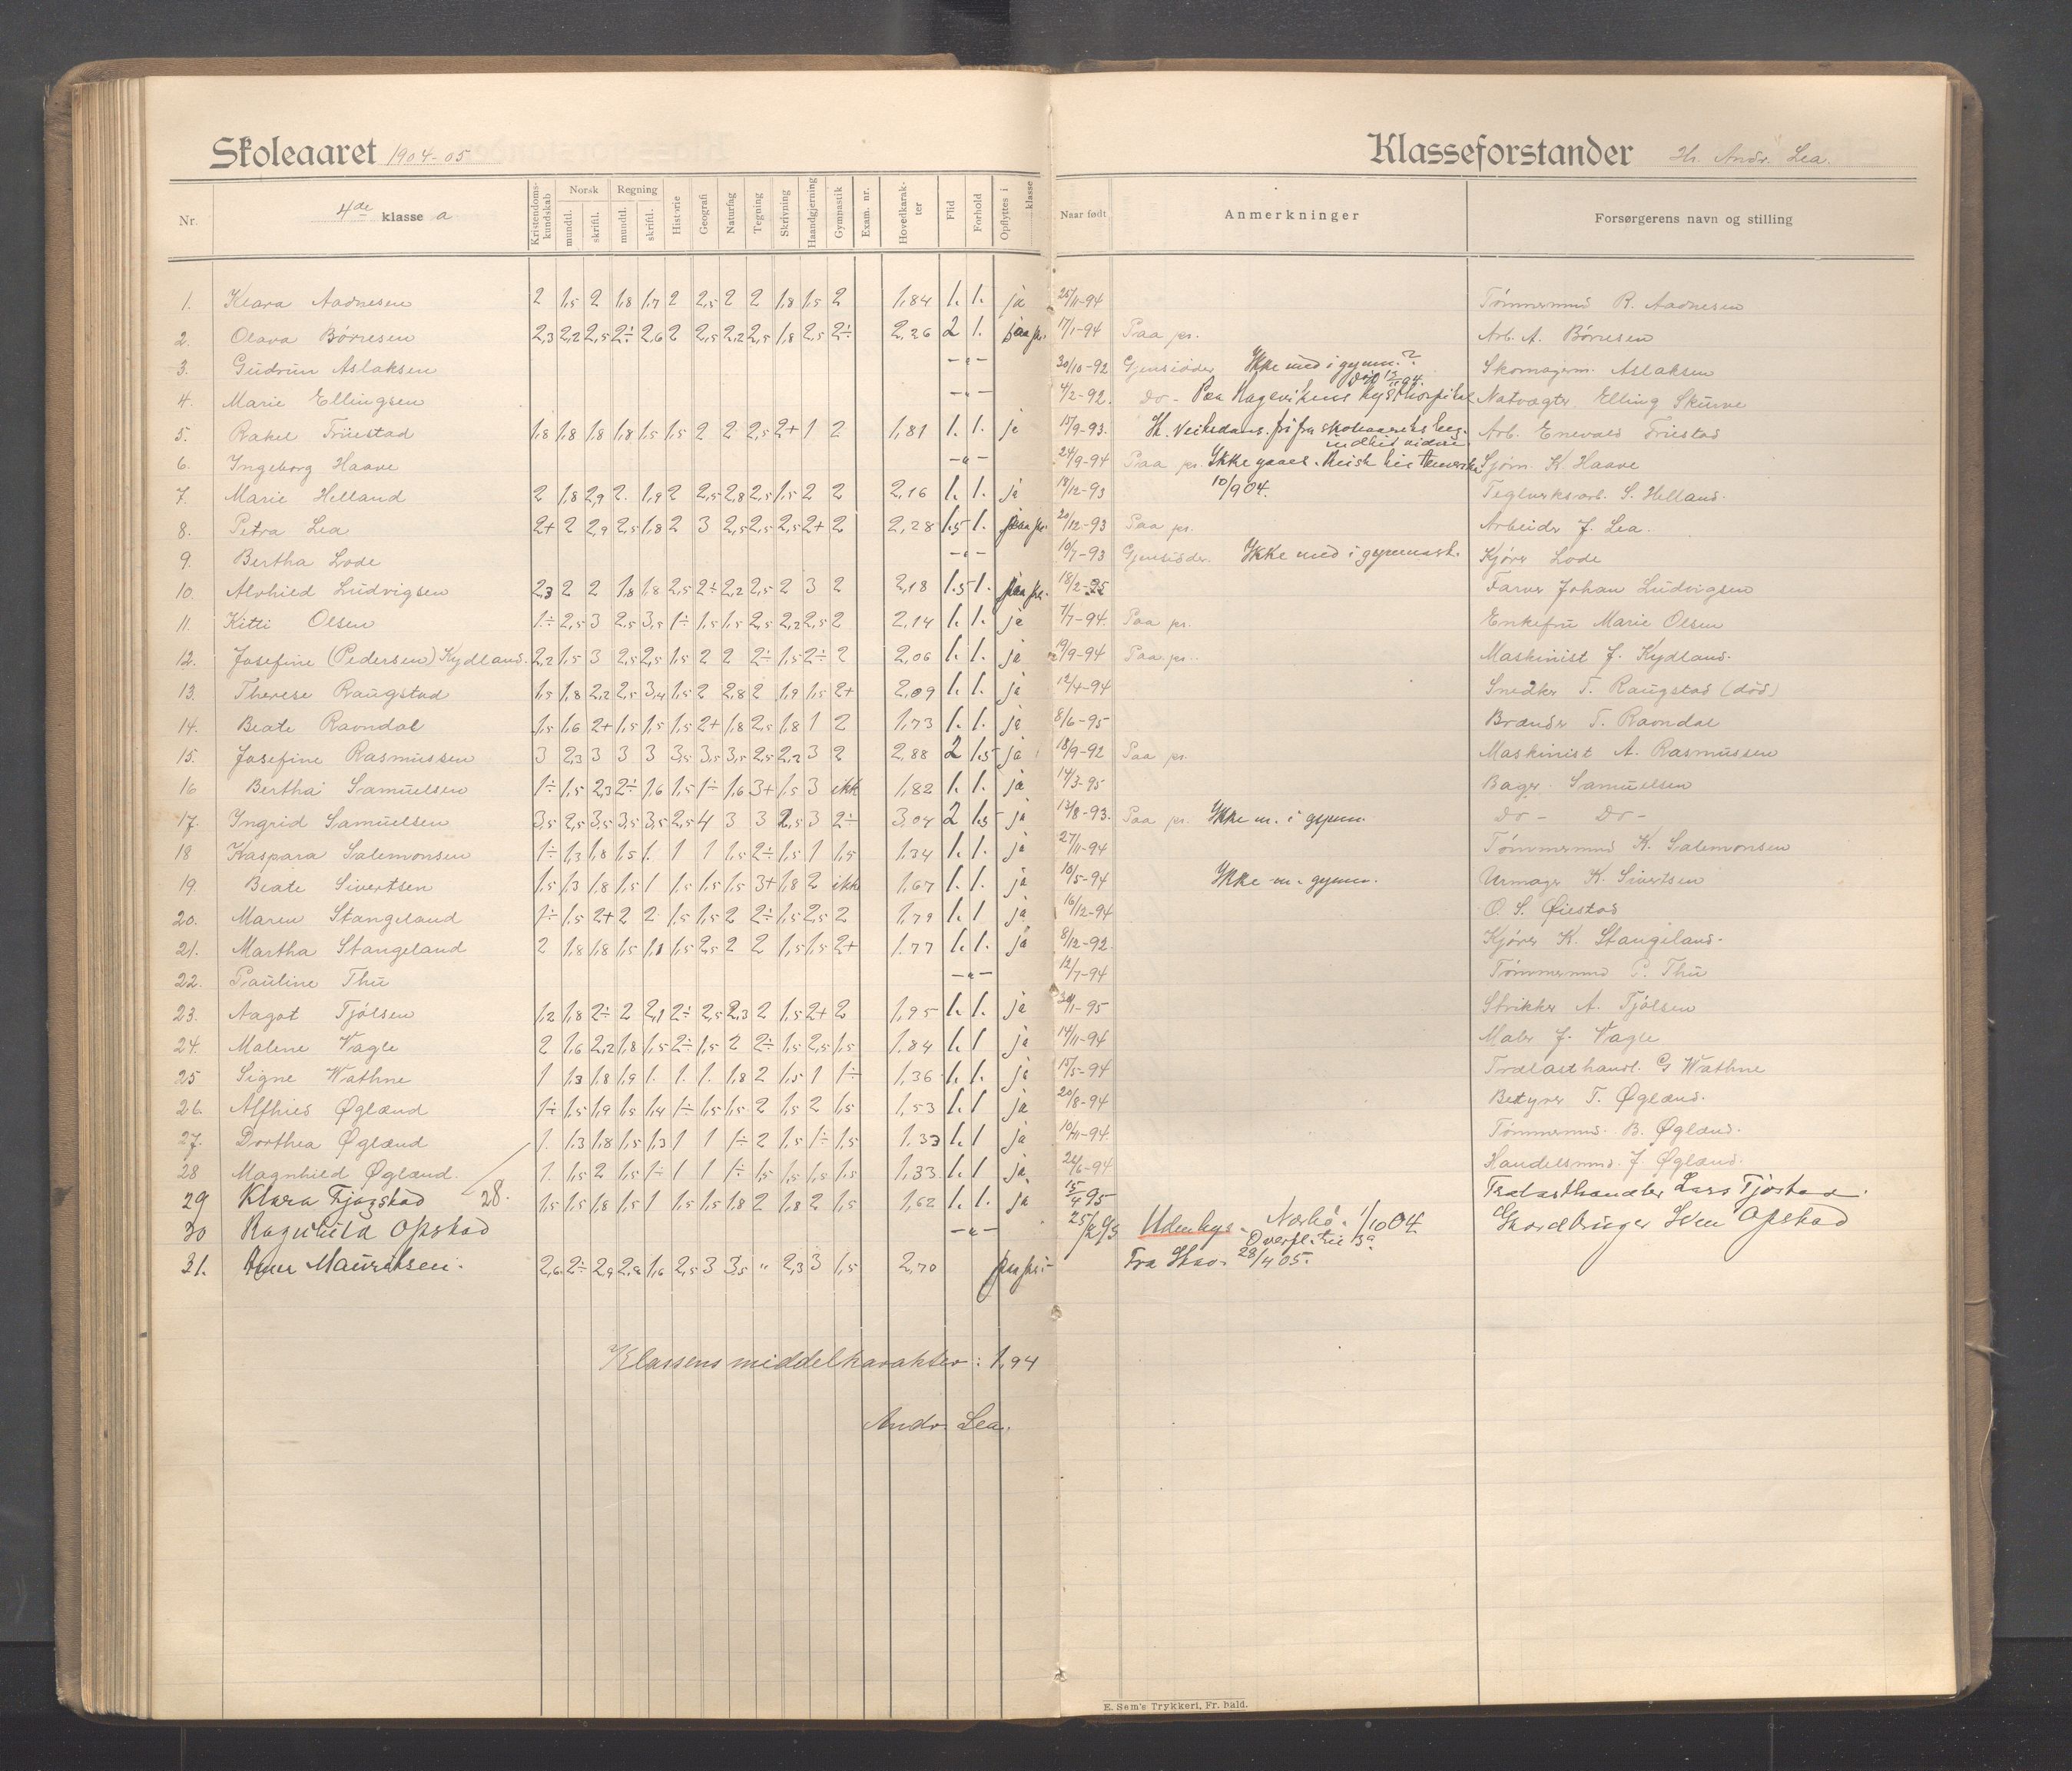 Skoleaaret 1904-05
Klasseforstander Hr. Andr. Lea.
Nr. 4de klasse a Kristendomskundskab Norsk mundtl. skriftl. Regning mundtl. skriftl. Historie Geografi Naturfag Tegning Skrivning Haandgjerning Gymnastik Exam. nr. Hovedkarakter Flid Forhold Opflyttes i klasse Naar født Anmerkninger Forsørgerens navn og stilling
1. Klara Aadnesen 2 1,5 2 1,8 1,7 2 2,5 2 2 1,8 1,5 2 1,84 1. 1. ja 25/11-94 Tömmermnd R. Aadnesen
2. Olava Börresen 2,3 2,2 2,5 2÷ 2,6 2 2,5 2,2 2,5 1,8 2,5 2÷ 2,26 2 1. paa pr. 17/1-94 Paa pr. Arb. A. Börresen
3. Gudrun Aslaksen -"- 30/10-92 Gjensidder Ikke med i gymn. Skomagerm. Aslaksen
4. Marie Ellingsen -"- 4/2-92. do- Paa Hagevikens kysthospital Natvægter Elling Skurve
5. Rakel Friestad 1,8 1,8 1,8 1,8 1,5 1,5 2 2 2,5 2+ 1 2 1,81 1. 1. ja 17/9-93. fri fra skoleaarets beg. indtil videre Arb. Enevald Friestad
6. Ingeborg Haave -"- 24/9-94 Paa pr. Ikke gaaet. Reist til Amerika Sjöm. K. Haave
7. Marie Helland 2 1,8 2,9 2. 1,9 2 2,5 2,8 2,5 1,5 2 2 2,16 1. 1. ja 18/12-93 10/9 04. Teglverksarb. S. Helland.
8. Petra Lea 2+ 2 2,9 2,5 1,8 2 3 2,5 2,5 2,5 2+ 2 2,28 1,5 1. paa pr. 20/12-93 Paa pr. Arbeider J. Lea.
9. Bertha Lode -"- 10/7-93 Gjensidder. Ikke med i gymnast. Kjörer Lode
10. Alvhild Ludvigsen 2,3 2 2 1,8 1,8 2,5 2÷ 2,2 2,5 2 3 2 2,18 1,5 1. paa pr. 18/2-95 Farver Johan Ludvigsen
11. Kitti Olsen 1÷ 2,5 3 2,5 3,5 1÷ 1,5 1,5 2,5 2,2 2,5 2 2,14 1. 1. ja 7/7-94. Paa pr. Enkefru Marie Olsen
12. Josefine (Pedersen) Kydland. 2,2 1,5 3 2,5 2,5 1,5 2 2 2÷ 1,5 2÷ 2 2,06 1. 1. ja 19/9-94 Paa pr. Maskinist J. Kydland.
13. Therese Raugstad 1,5 1,8 2,2 2,5 3,4 1,5 2 2,8 2 1,9 1,5 2+ 2,09 1. 1. ja 12/4-94 Snedker T. Raugstad (död)
14. Beate Ravndal 1,5 1,6 2+ 1,5 1,5 1,5 2+ 1,8 2,5 1,8 1 2 1,73 1. 1. ja 8/6-95 T. Ravndal
15. Josefine Rasmussen 3 2,3 3 3 3 3,5 3,5 3,5 2,5 2,2 3 2 2,88 2 1,5 ja 18/9-92 Paa pr. Maskinist A. Rasmussen
16 Bertha Samuelsen 1÷ 1,5 2,3 2÷ 1,6 1,5 1÷ 1,6 3+ 1,5 3 ikke 1,82 1. 1. ja 14/3-95 Bager Samuelsen
17. Ingrid Samuelsen 3,5 2,5 3,5 3,5 3,5 2,5 4 3 3 2,5 3 2÷ 3,04 2 1,5 ja 13/8-93. Paa pr. Ikke m. i gymn. Do- Do-
18 Kaspara Salemonsen 1÷ 1,3 1,8 1,5 1. 1 1 1,5 2÷ 1,5 1 1,5 1,34 1. 1. ja 27/11-94 Tömmermnd K. Salemonsen
19. Beate Sivertsen 1,5 1,3 1,8 1,5 1 1,5 1,5 1,5 3+ 1,8 2 ikke 1,67 1. 1. ja 10/5-94 Ikke m. gymn. Urmager K. Sivertsen
20. Maren Stangeland 1÷ 1,5 2+ 2 2 1,5 1,5 2 2÷ 1,5 2,5 2 1,79 1. 1 ja 16/12-94 O. S. Øiestad
21. Martha Stangeland 2 1,8 1,8 1,5 1,1 1,5 2,5 2 2 1,5 1,5 2+ 1,77 1. 1. ja 8/12-92. Kjörer K. Stangeland.
22. Pauline Thu -"- 12/7-94 Tömmermnd P. Thu
23. Aagot Tjölsen 1,2 1,8 2÷ 2 2,1 2÷ 2,5 2,3 2 1,5 2+ 2 1,95 1. 1. ja 30/1-95 Strikker A. Tjölsen
24. Malene Vagle 2 1,6 2,2 1,8 1,5 2÷ 1,5 2 2÷ 1,5 2,5 1,5 1,84 1. 1 ja 14/11-94 Maler J. Vagle
25 Signe Wathne 1 1,3 1,8 1,9 1. 1. 1. 1,8 2 1,5 1 1÷ 1,36 1. 1. ja 15/5-94 Trælasthandl. G Wathne
26. Alfhild Øglænd 1÷ 1,5 1,9 1,5 1,4 1÷ 1,5 1,5 2 1,5 2 1,5 1,53 1. 1 ja 20/8-94 Bestyrer T. Øglænd.
27. Dorthea Øglænd 1. 1,3 1,8 1,5 1,3 1 1 1÷ 2 1,5 1÷ 1,5 1,33 1. 1 ja 10/11-94. Tömmermnd. B. Øglænd.
28 Magnhild Øglænd. 1. 1,5 2 1,5 1÷ 1 1 1÷ 1,5 1,5 1,5 1,5 1,33 1. 1 ja 26/6-94 Handelsmnd. J. Øglænd.
29 Klara Tjøgstad 28. 1,5 1,5 1,8 1,5 1 1,5 1,5 1,8 2 1,8 2 1,5 1,62 1. 1. ja 15/4 95 Trælasthandler Lars Tjøstad.
30 Ragnhild Opstad -"- 25/2 93 Udenbys. Nærbö. 1/10 04 Gaardbruger Sven Opstad
Overfl. til 3a
31. Anna Mauritsen. 2,6 2÷ 2,9 2,8 1,6 2,5 3 3,5 " 2,3 3 1,5 2,70 paa pr. Fra Stav. 28/4 05.
Klassens middelkarakter: 1,94
Andr. Lea.
E. Sem's Trykkeri, Fr.hald.